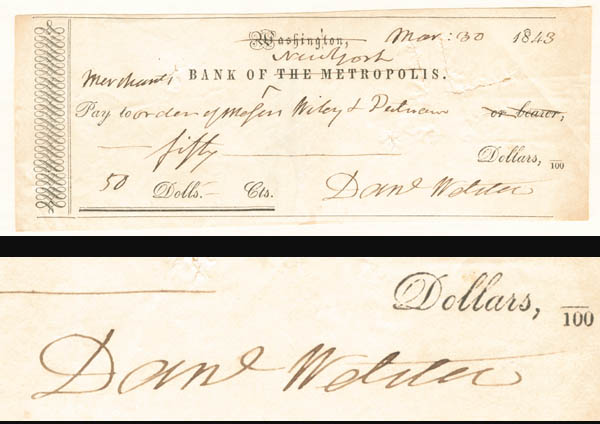 Washington, Mar: 30 1843
New York
Merchants BANK OF THE METROPOLIS.
Pay to order of Messrs Wiley & Putnam or bearer,
fifty Dollars, /100
50 Dolls. Cts. Danl Webster
Dollars, /100
Danl Webster